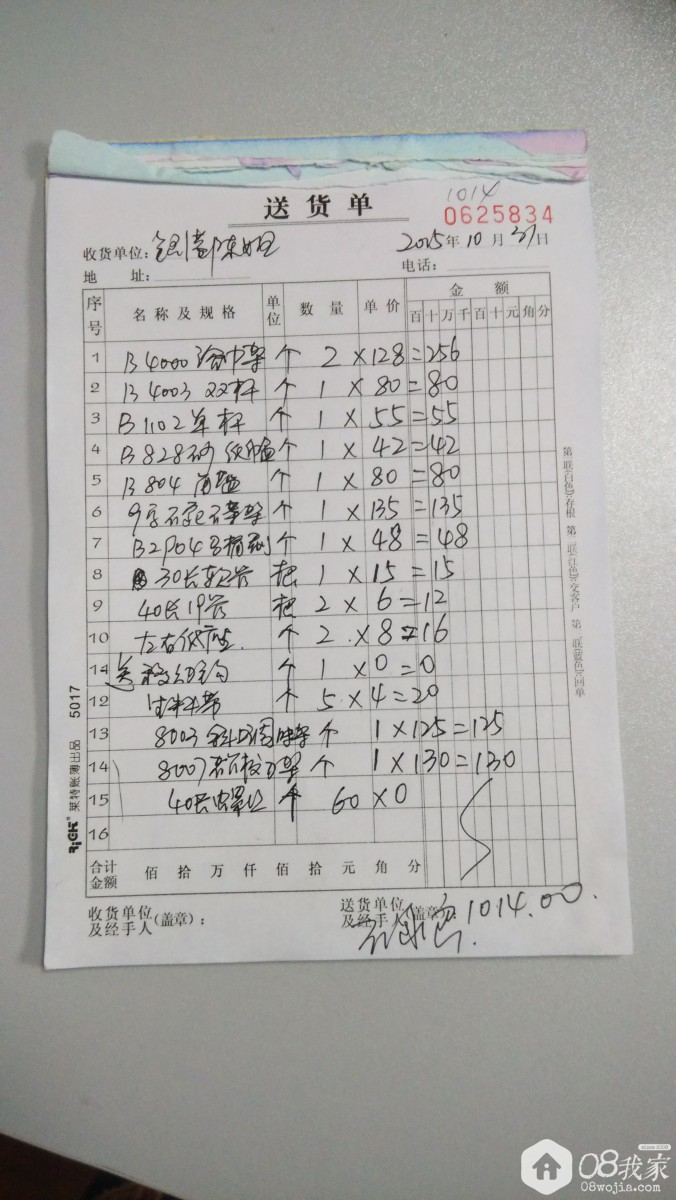 1014
送货单
0625834
收货单位:
2015年10月27日
地 址:
电话:
序号 名称及规格 单位 数量 单价 金额
百十万千百十元角分
1 B4000浴巾架 个 2×128=256
2 B4003双杆 个 1×80=80
3 B1102单杆 个 1×55=55
4 B828 个 1×42=42
5 B804 个 1×80=80
6 个 1×135=135
7 B2P04马桶刷 个 1×48=48
8 30长软管 把 1×15=15
9 40长 把 2×6=12
10 个 2×8=16
11 送 个 1×0=0
12 生料带 个 5×4=20
13 8003 调味架 个 1×125=125
14 8007 个 1×130=130
15 40长 个 60×0
16
合计金额 佰拾万仟佰拾元角分
收货单位及经手人(盖章):
送货单位及经手人(盖章):
1014.00.
第一联(白色)存根 第二联(红色)交客户 第三联(蓝色)回单
RiCK 莱特账簿出品 5017
08我家
08wojia.com